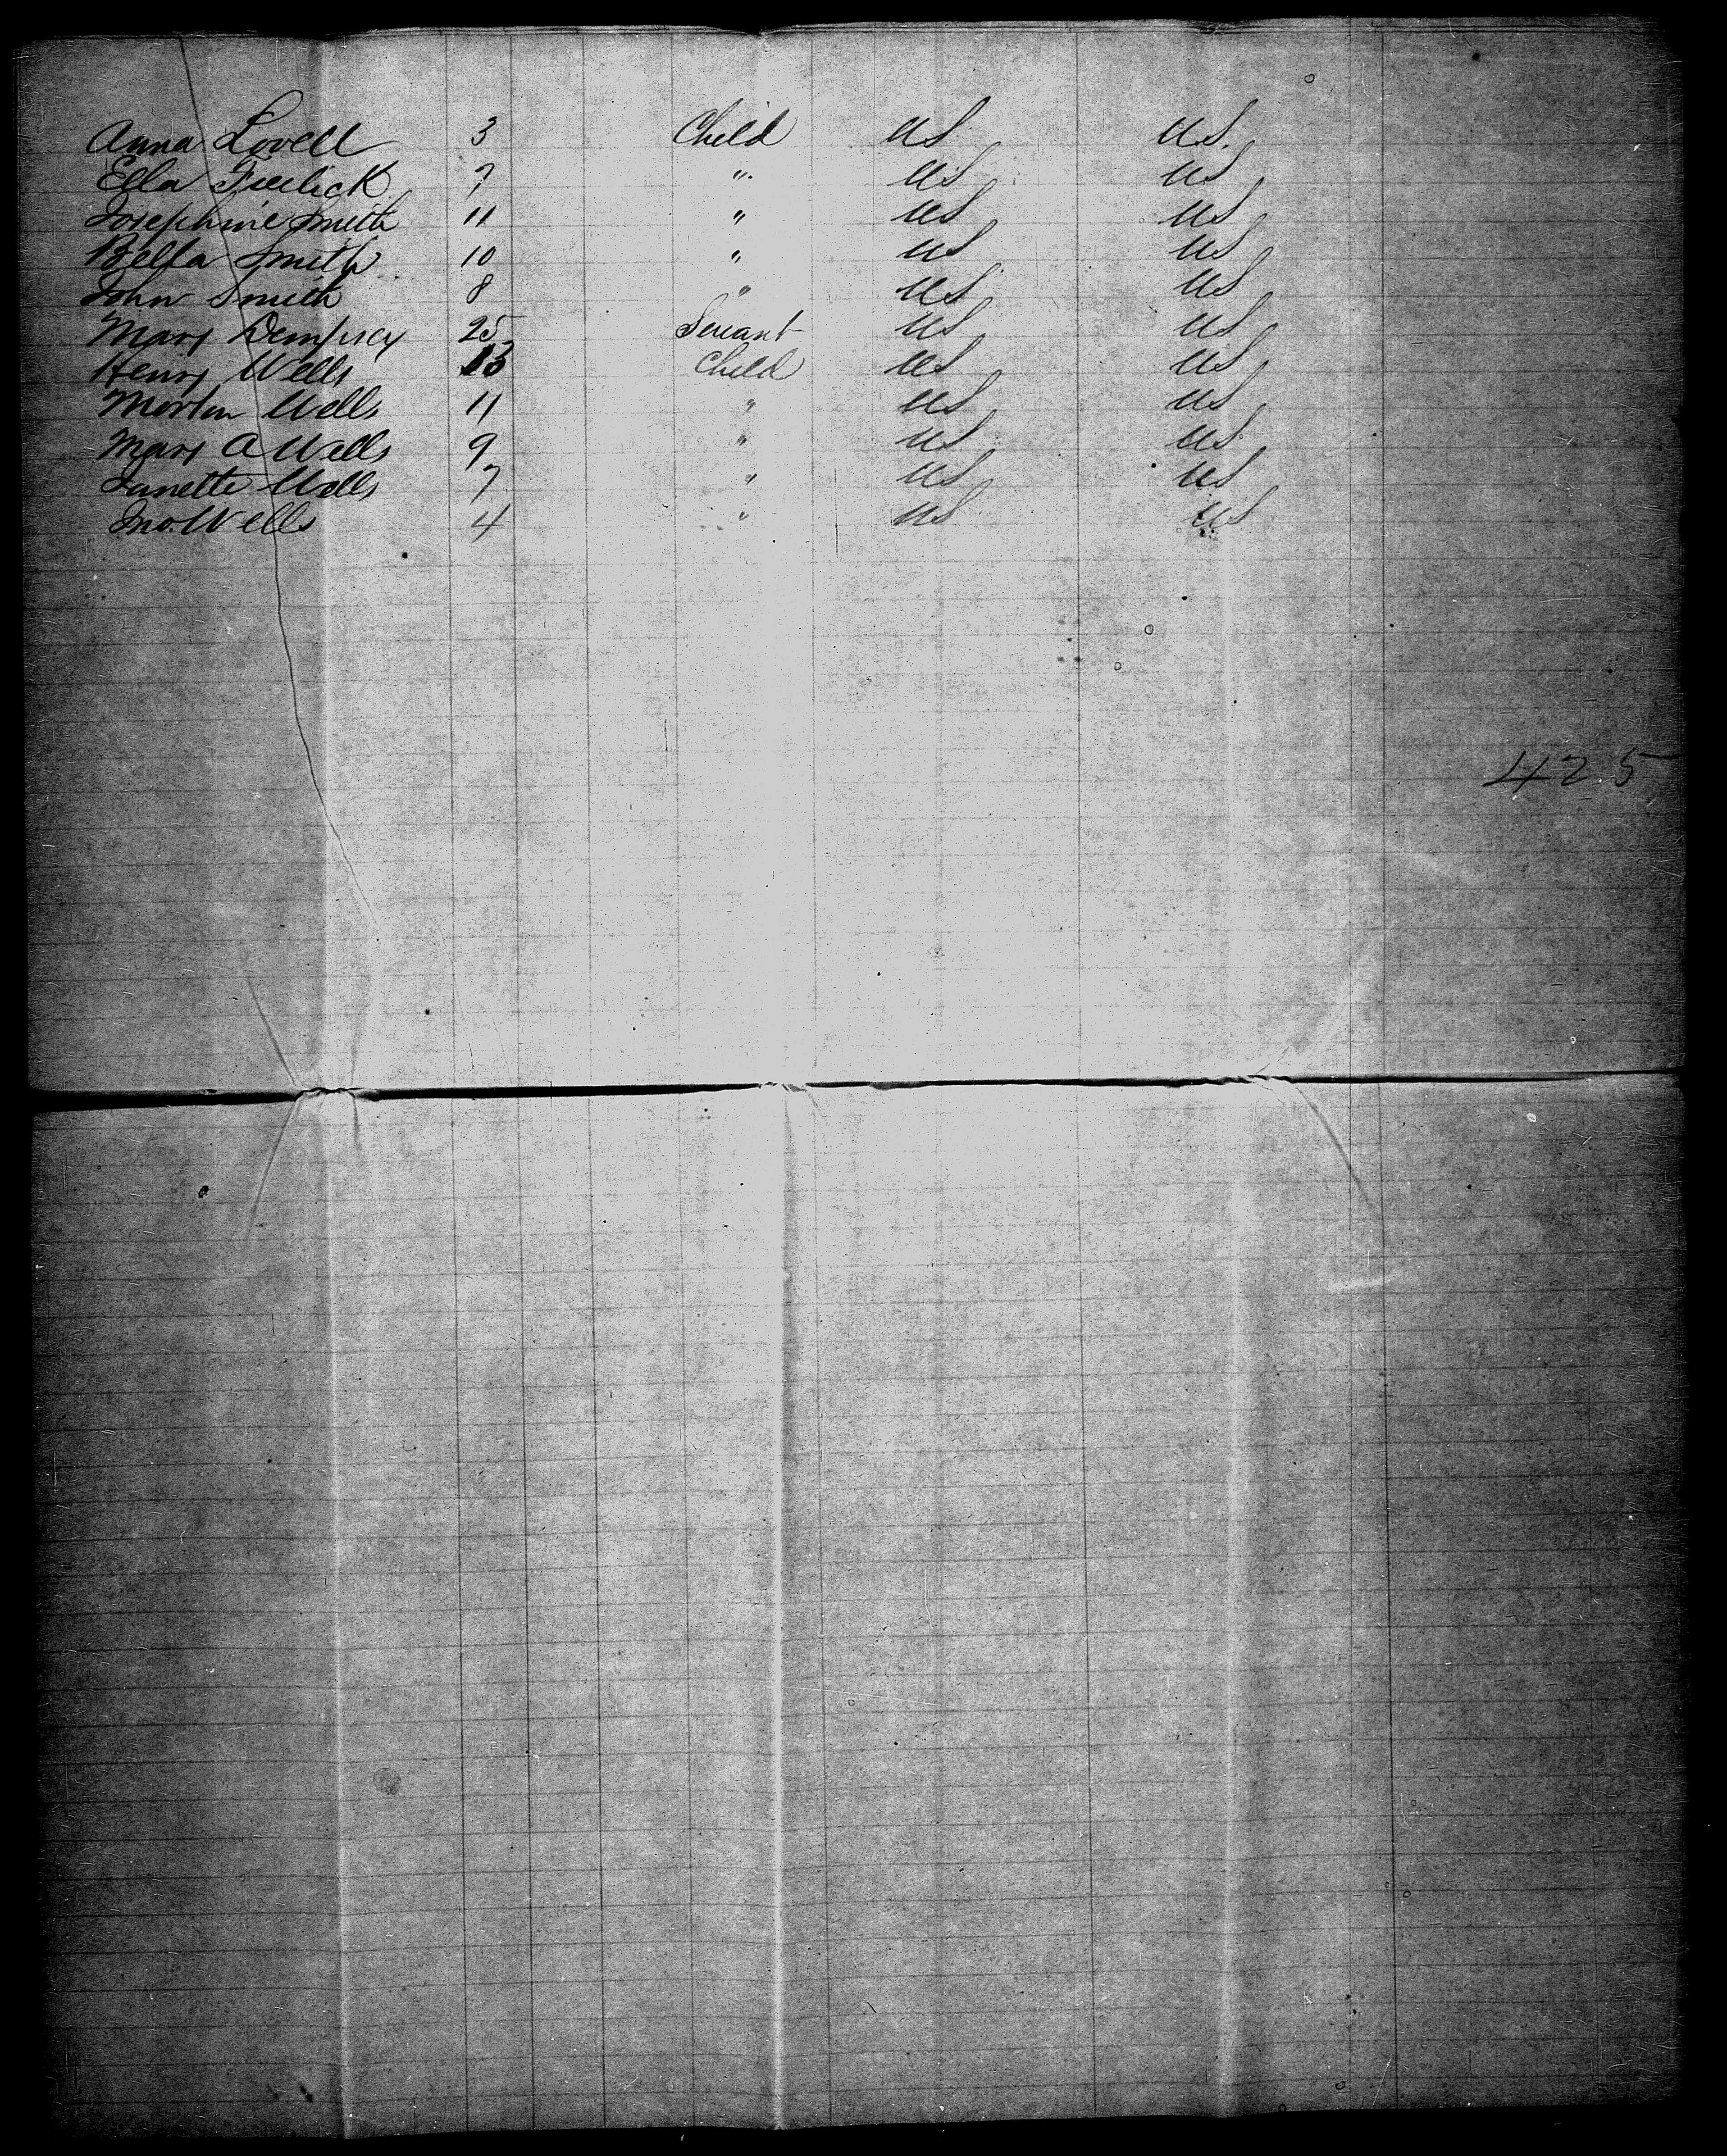 Anna Lovell 3 Child US US.
Ella 7 " US US
Josephine Smith 11 " US US
Bella Smith 10 " US US
John Smith 8 " US US
Mary Dempsey 25 Servant US US
Henry Wells 13 Child US US
Morton Wells 11 " US US
Mary A Wells 9 " US US
Janette Wells 7 " US US
Jno. Wells 4 " US US
425